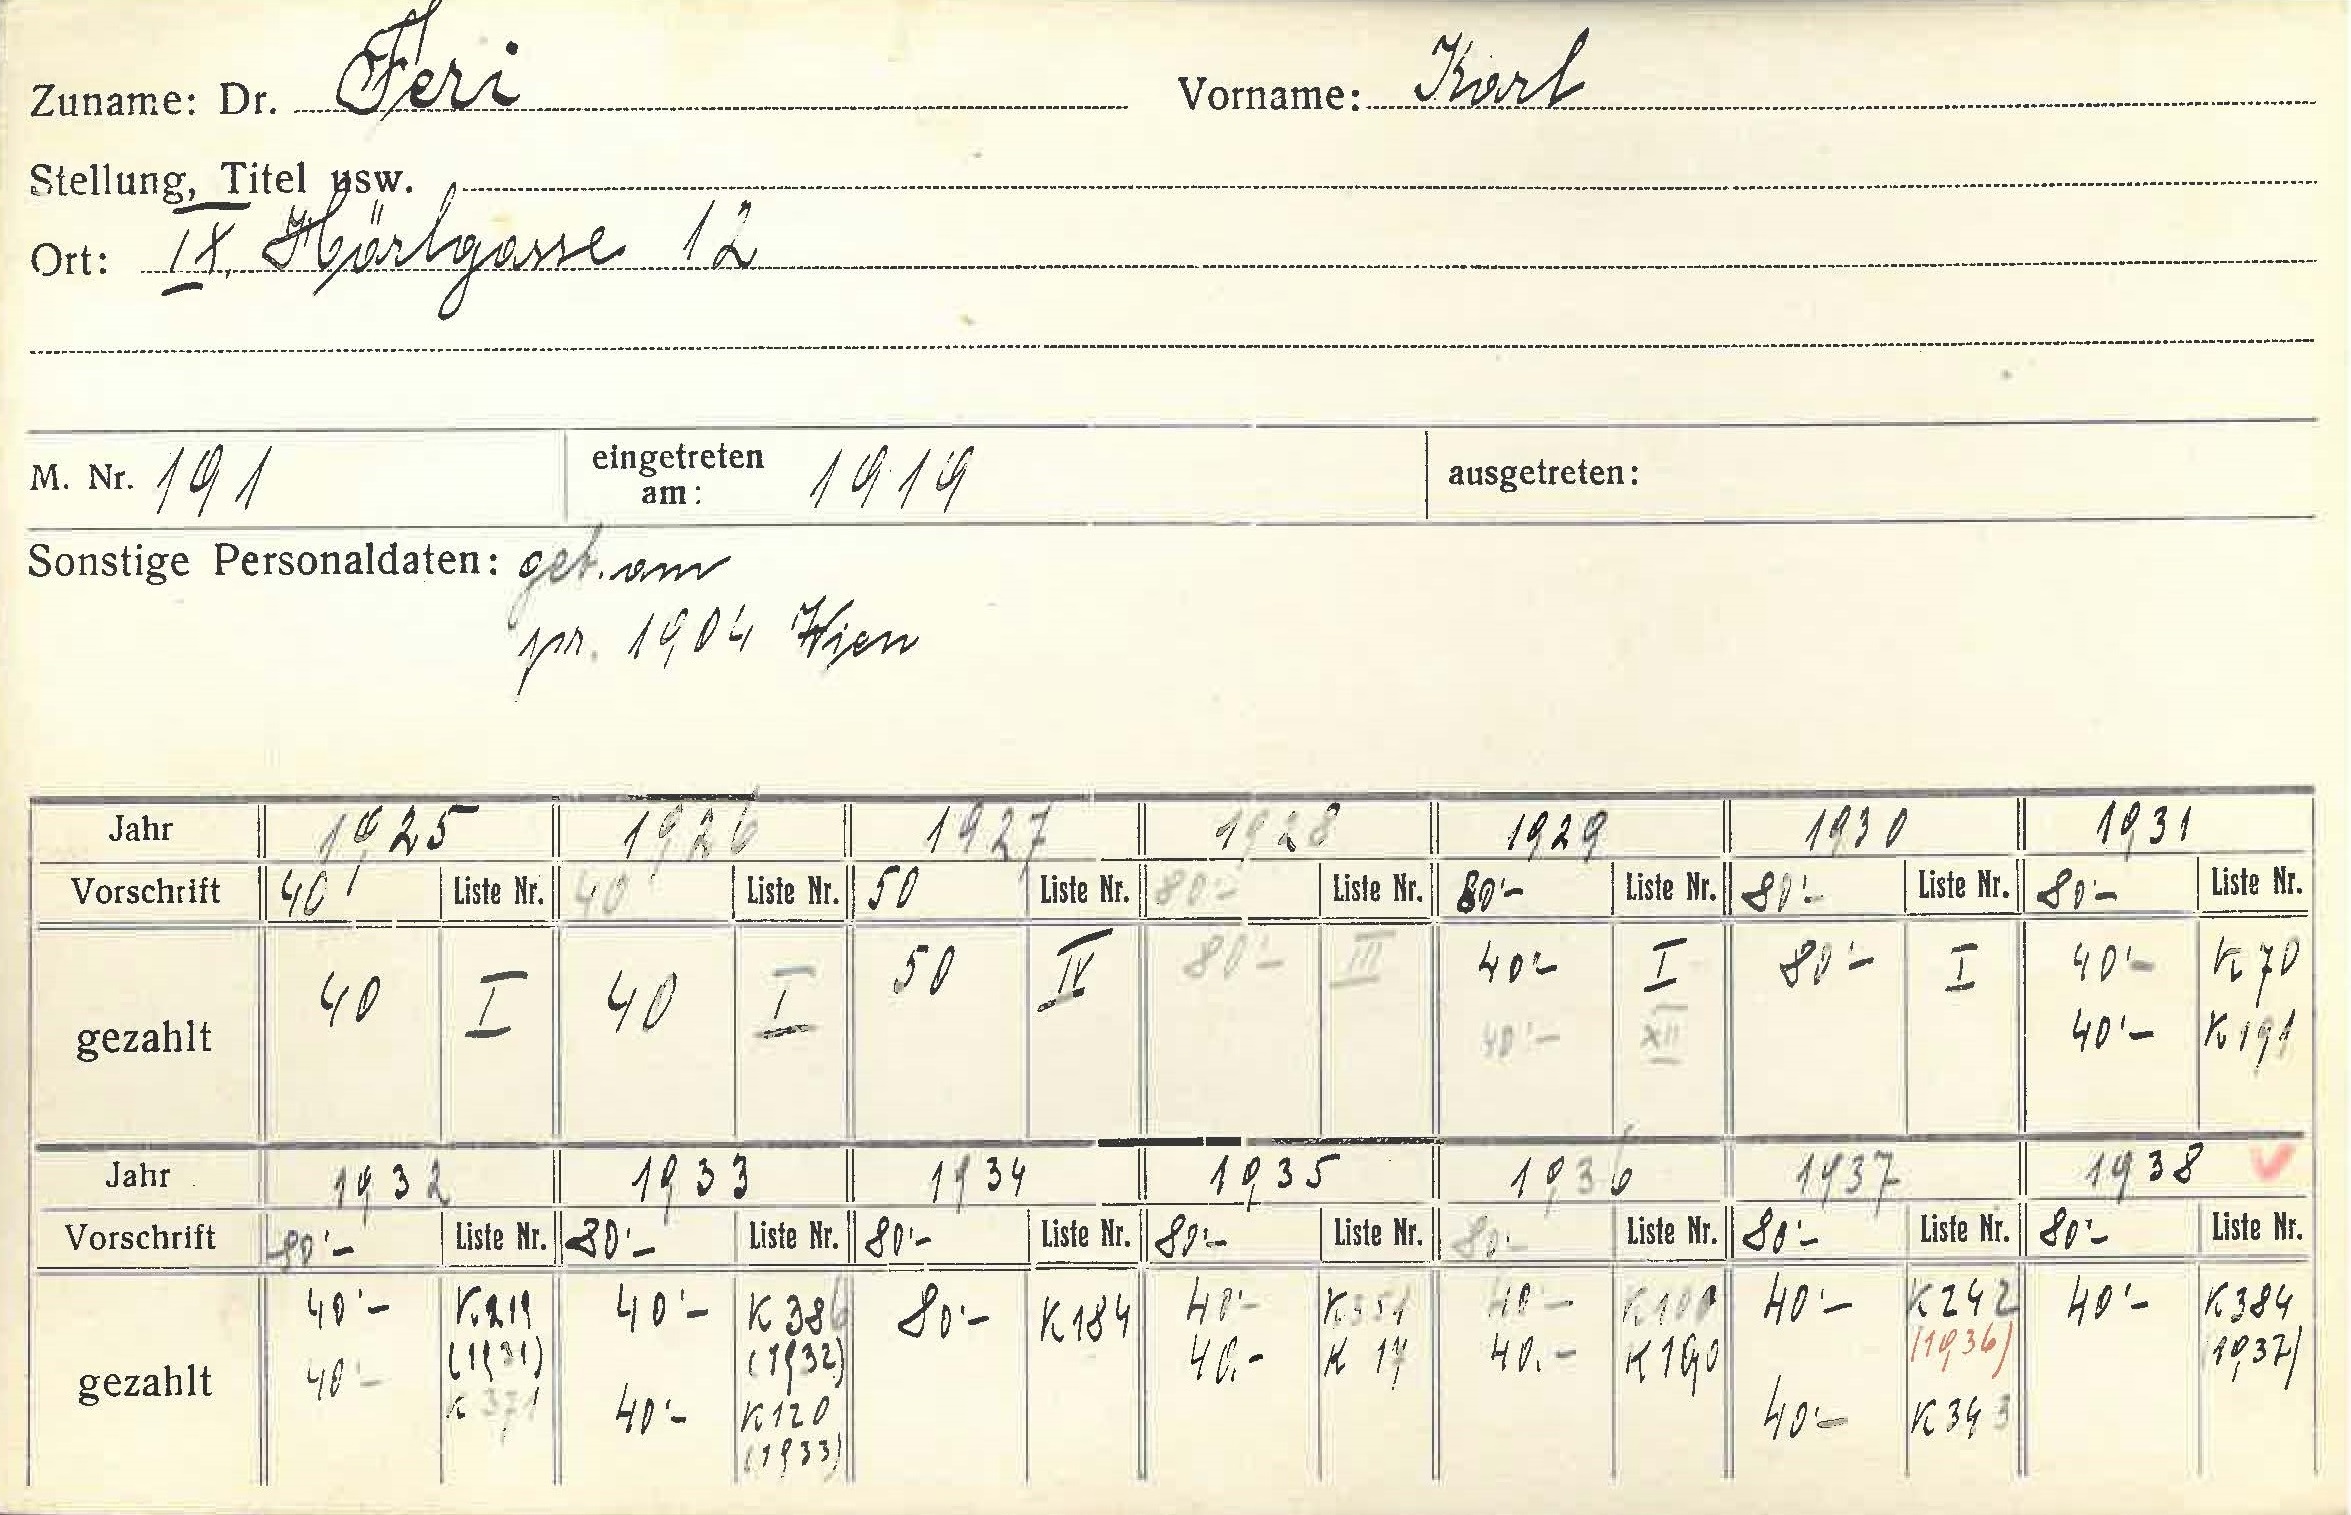 Zuname: Dr. Feri Vorname: Karl
Stellung, Titel usw.
Ort: IX, Hörlgasse 12
M. Nr. 191 eingetreten am: 1919 ausgetreten:
Sonstige Personaldaten: geb. am
pr. 1904 Wien
Jahr 1925 1926 1927 1928 1929 1930 1931
Vorschrift 40 Liste Nr. 40 Liste Nr. 50 Liste Nr. 80'- Liste Nr. 80'- Liste Nr. 80'- Liste Nr. 80'- Liste Nr.
gezahlt 40 I 40 I 50 IV 80'- III 40'- I 80'- I 40'- K 70
40'- XII 40'- K 191
Jahr 1932 1933 1934 1935 1936 1937 1938
Vorschrift 80'- Liste Nr. 80'- Liste Nr. 80'- Liste Nr. 80'- Liste Nr. 80'- Liste Nr. 80'- Liste Nr. 80'- Liste Nr.
gezahlt 40'- K 219 40'- K 386 80'- K 184 40'- K 351 40'- 40'- K 242 40'- K 384
(1931) (1932) 40.- K 17 40.- K 190 (1936) (1937)
40'- K 371 40'- K 120 40'- K 343
(1933)